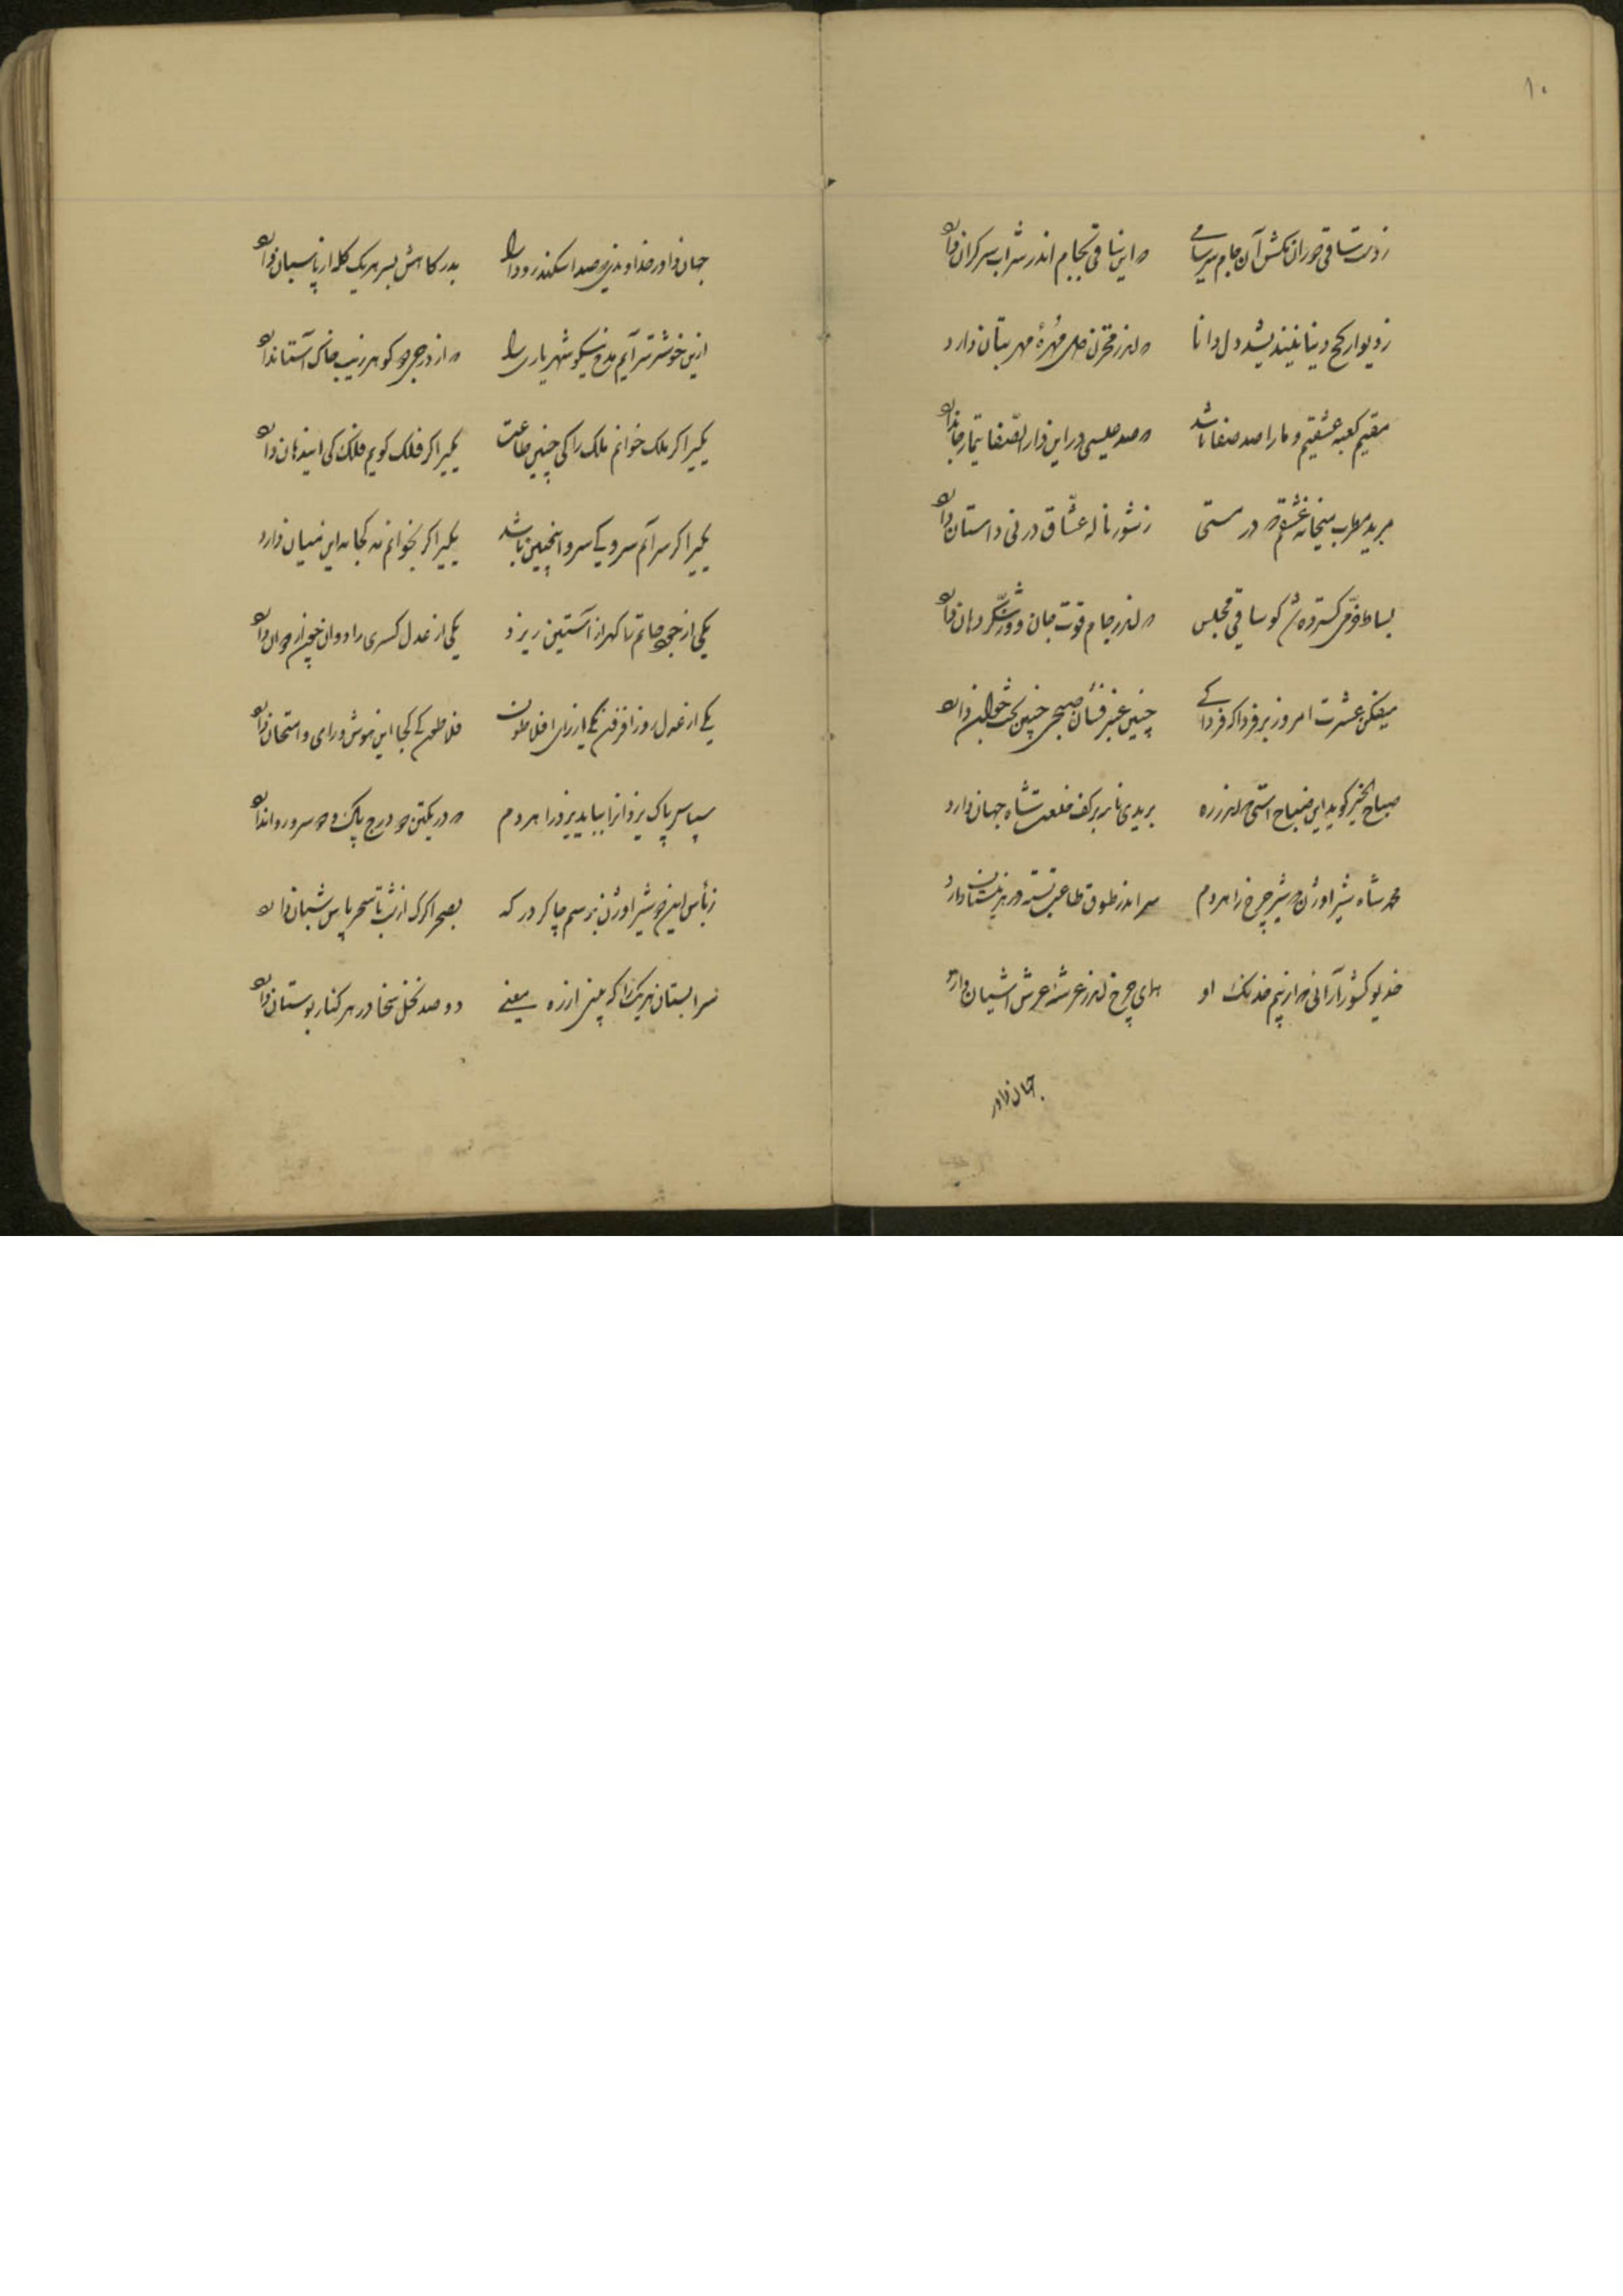 ۱۰
ز دست ساقی دوران مکش آن جام سرسامی که این ساقی بجام اندر شراب سرگران دارد
ز دیوار کج دنیا نیندیشد دل دانا که اندر مخزن دل مهرهٔ مهر بتان دارد
مقیم کعبه عشقیم و ما را صد صفا باشد که صد عیسی در این دار الصفا تیمار جان دارد
مرید مطرب میخانه عشقم که در مستی ز شور ناله عشاق در نی داستان دارد
بساط خرمی گسترده شد کو ساقی مجلس که اندر جام قوت جان و در شکر دهان دارد
میفکن عشرت امروز بر فردا که فردا کی چنین عنبر فشان صبحی چنین بخت جوان دارد
صباح الخیر گوید این صباح استی که اندر ره بریدی نامه بر کف خلعت شاه جهان دارد
محمد شاه شیر اوژن که شیر چرخ را هر دم سر اندر طوق طاعت بسته در دارد
خدیو کشور آرائی که از بیم خدنگ او همای چرخ اندر عرشهٔ عرش آشیان دارد
جهان داور
جهان داور خداوندی که صد اسکندر و دارا بدرگاهش بسر هر یک کله از پاسبان دارد
ازین خوشتر سرایم مدح نیکو شهریاری را که از درج گوهر زیب خاک آستان دارد
یکی را گر ملک خوانم ملک را کی چنین طاعت یکی را گر فلک گویم فلک کی اینزمان دارد
یکی را گر سرایم سرو کی سرو اینچنین باشد یکی را گر بخوانم مه کجا مه این میان دارد
یکی از جود حاتم تا گهر از آستین ریزد یکی از عدل کسری را دوان چون دارد
یکی از عدل روز افزون یکی از رای افلاطون فلاطون کی کجا این هوش و رای و امتحان دارد
سپاس پاک یزدان را بباید یزد را هر دم که در یکتن دو درج پاک و دو سرو روان دارد
ز بأس این دو شیر اوژن برسم چاکر درگه بصحرا گرگ از شب تا سحر پاس شبان دارد
سرابستان هر یک را که بینی از ره معنی دو صد نخل سخا در هر کنار بوستان دارد